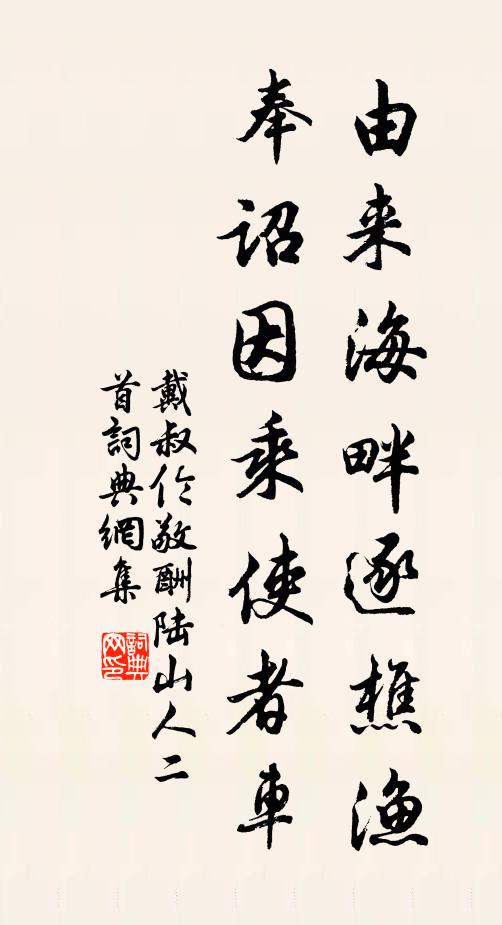 由来海畔逐樵漁
奉詔因乘使者車
戴叔伦敬酬陆山人二
首詞典網集
詞典
网印